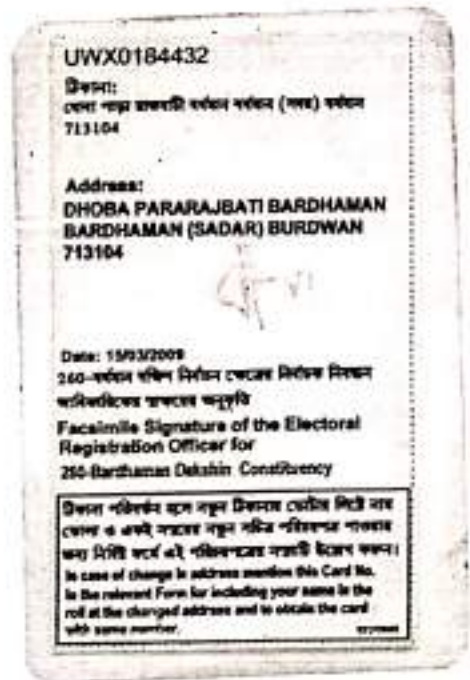 UWX0184432
ঠিকানা:
ধোবা পাড়া রাজবাটী বর্ধমান বর্ধমান (সদর) বর্ধমান
713104
Address:
DHOBA PARARAJBATI BARDHAMAN
BARDHAMAN (SADAR) BURDWAN
713104
Date: 15/03/2009
260-বর্ধমান দক্ষিণ নির্বাচন ক্ষেত্রের নির্বাচক নিবন্ধন
আধিকারিকের স্বাক্ষরের অনুকৃতি
Facsimile Signature of the Electoral
Registration Officer for
260-Bardhaman Dakshin Constituency
ঠিকানা পরিবর্তন হলে নতুন ঠিকানায় ভোটার লিস্টে নাম
তোলা ও একই নম্বরের নতুন সচিত্র পরিচয়পত্র পাওয়ার
জন্য নির্দিষ্ট ফর্মে এই পরিচয়পত্রের নম্বরটি উল্লেখ করুন।
In case of change in address mention this Card No.
in the relevant Form for including your name in the
roll at the changed address and to obtain the card
with same number.